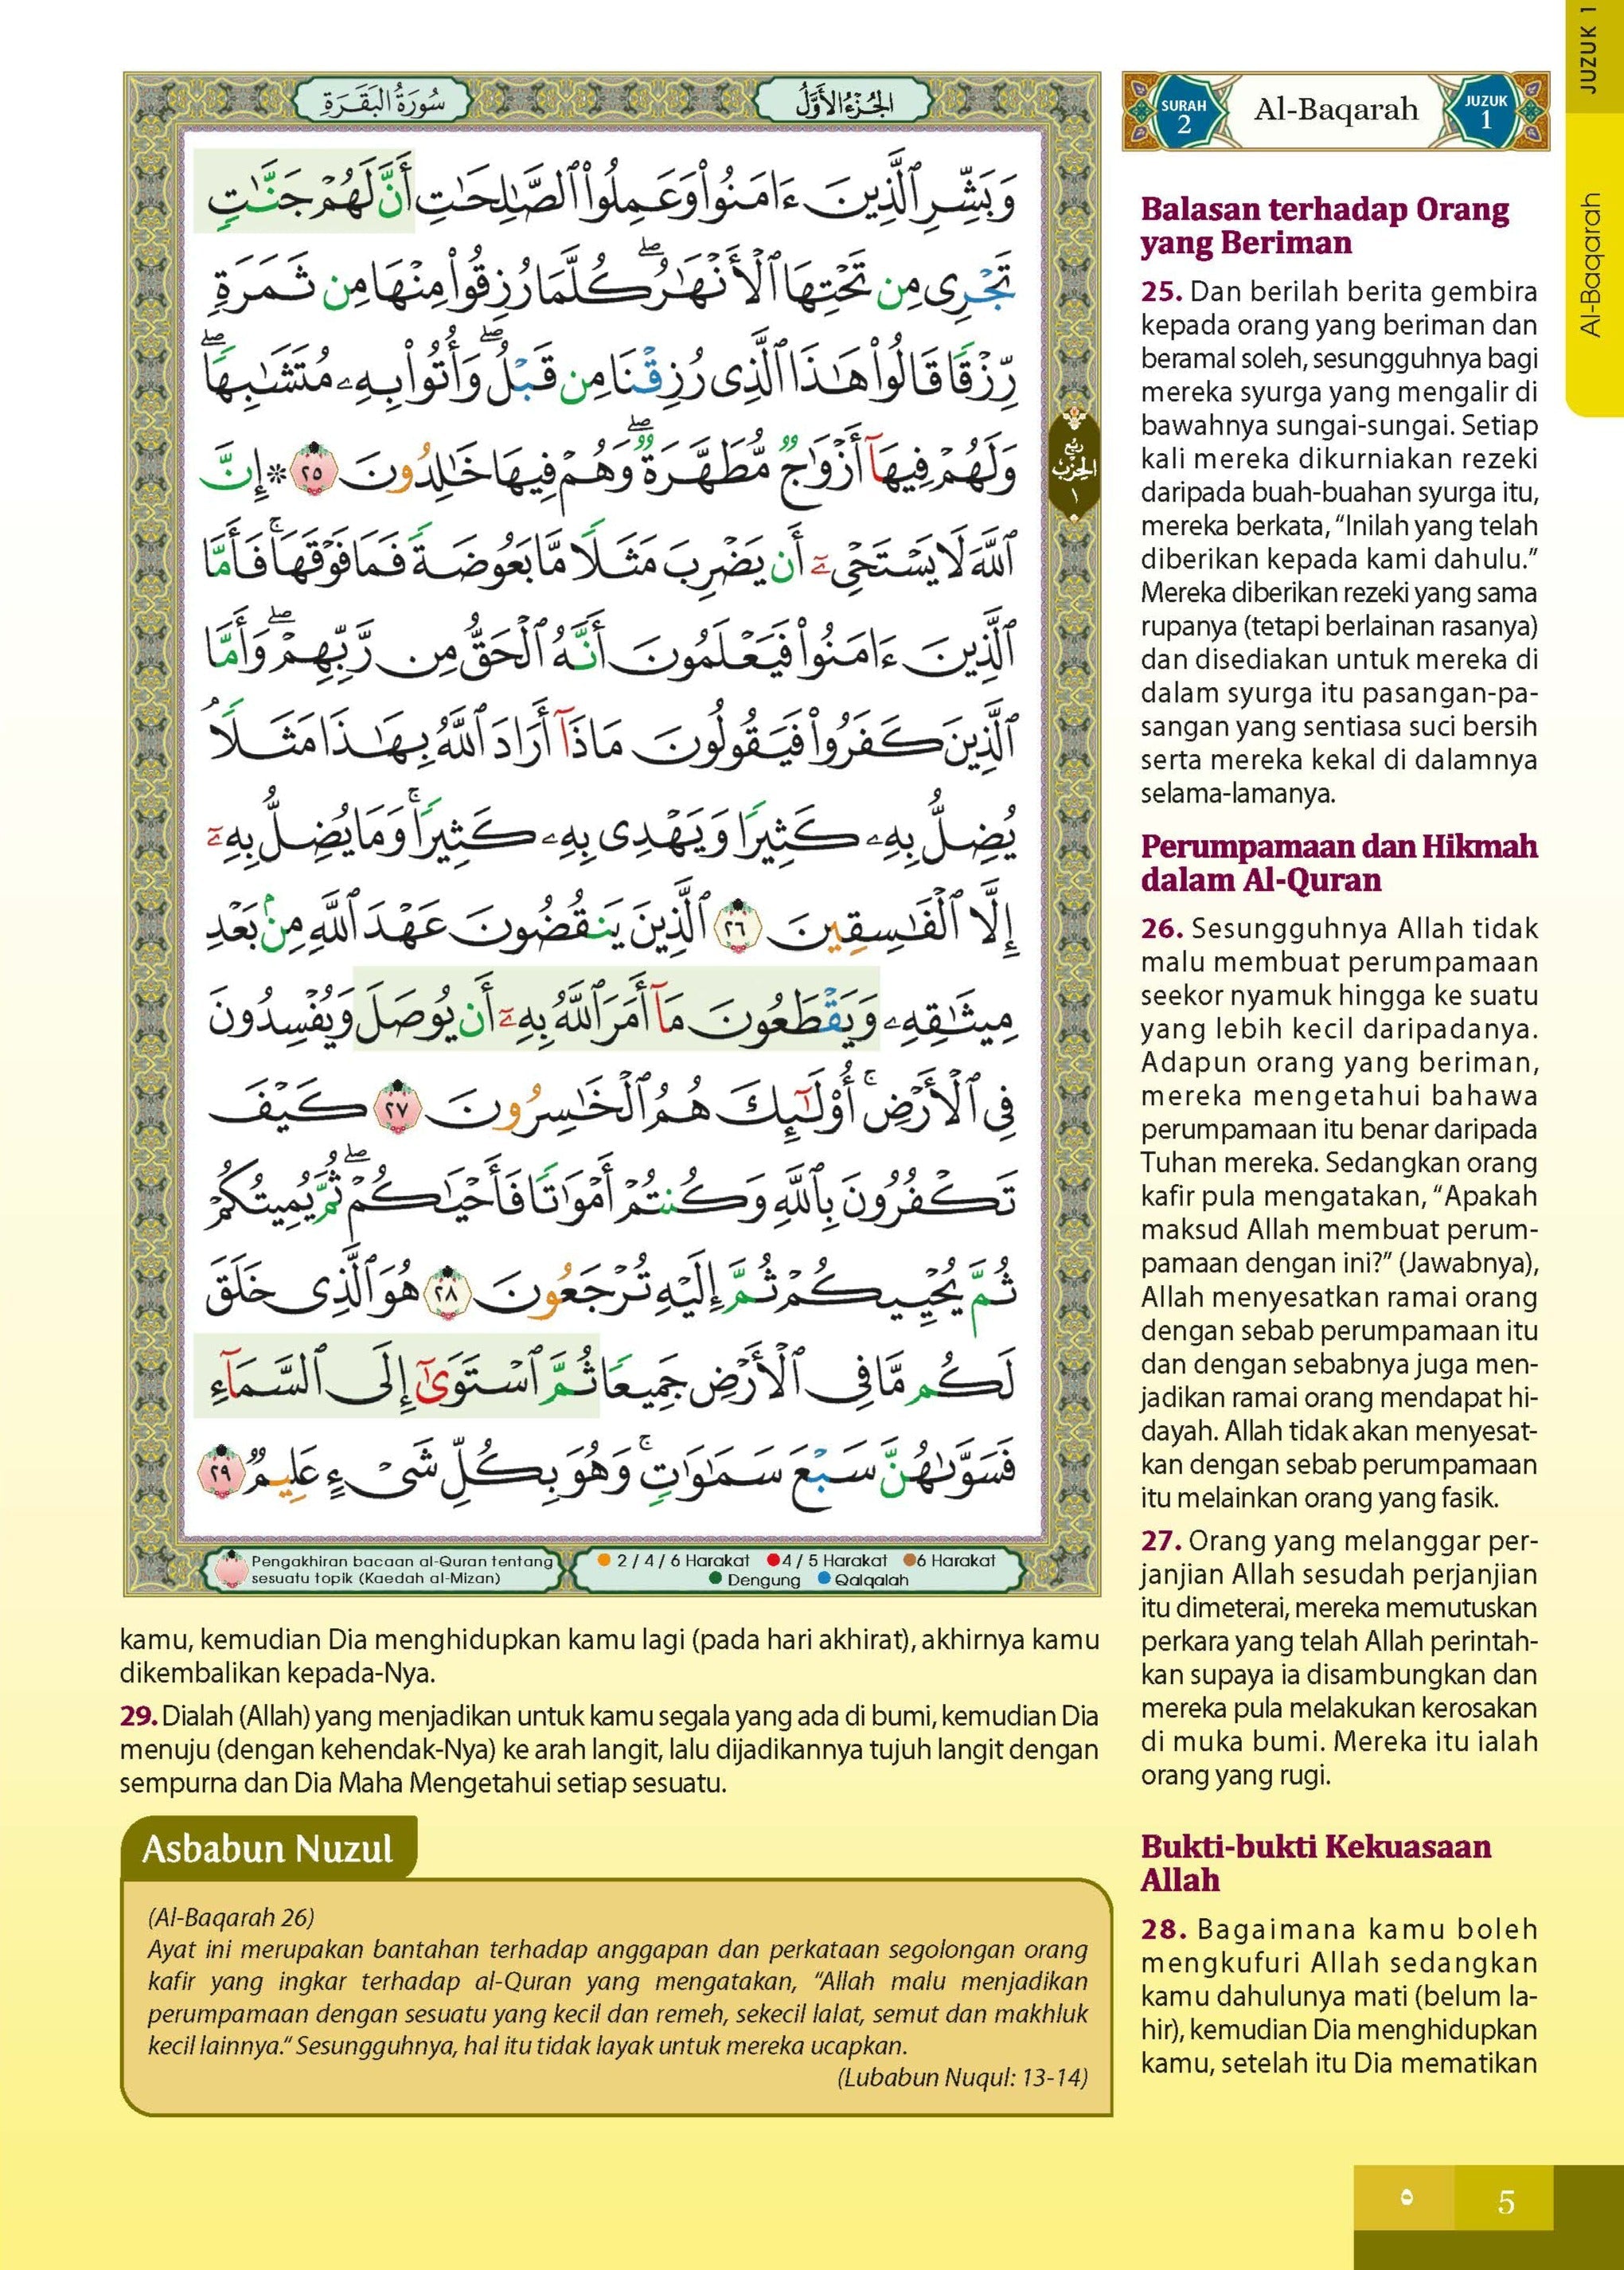 JUZUK 1
Al-Baqarah
سُورَةُ البَقَرَةِ
الجُزْءُ الأَوَّلُ
وَبَشِّرِ ٱلَّذِينَ ءَامَنُوا۟ وَعَمِلُوا۟ ٱلصَّٰلِحَٰتِ أَنَّ لَهُمْ جَنَّٰتٍ
تَجْرِى مِن تَحْتِهَا ٱلْأَنْهَٰرُ ۖ كُلَّمَا رُزِقُوا۟ مِنْهَا مِن ثَمَرَةٍ
رِّزْقًا قَالُوا۟ هَٰذَا ٱلَّذِى رُزِقْنَا مِن قَبْلُ ۖ وَأُتُوا۟ بِهِۦ مُتَشَٰبِهًا ۖ
وَلَهُمْ فِيهَآ أَزْوَٰجٌ مُّطَهَّرَةٌ ۖ وَهُمْ فِيهَا خَٰلِدُونَ ٢٥ * إِنَّ
ٱللَّهَ لَا يَسْتَحْىِۦٓ أَن يَضْرِبَ مَثَلًا مَّا بَعُوضَةً فَمَا فَوْقَهَا ۚ فَأَمَّا
ٱلَّذِينَ ءَامَنُوا۟ فَيَعْلَمُونَ أَنَّهُ ٱلْحَقُّ مِن رَّبِّهِمْ ۖ وَأَمَّا
ٱلَّذِينَ كَفَرُوا۟ فَيَقُولُونَ مَاذَآ أَرَادَ ٱللَّهُ بِهَٰذَا مَثَلًا ۘ
يُضِلُّ بِهِۦ كَثِيرًا وَيَهْدِى بِهِۦ كَثِيرًا ۚ وَمَا يُضِلُّ بِهِۦٓ
إِلَّا ٱلْفَٰسِقِينَ ٢٦ ٱلَّذِينَ يَنقُضُونَ عَهْدَ ٱللَّهِ مِنۢ بَعْدِ
مِيثَٰقِهِۦ وَيَقْطَعُونَ مَآ أَمَرَ ٱللَّهُ بِهِۦٓ أَن يُوصَلَ وَيُفْسِدُونَ
فِى ٱلْأَرْضِ ۚ أُو۟لَٰٓئِكَ هُمُ ٱلْخَٰسِرُونَ ٢٧ كَيْفَ
تَكْفُرُونَ بِٱللَّهِ وَكُنتُمْ أَمْوَٰتًا فَأَحْيَٰكُمْ ۖ ثُمَّ يُمِيتُكُمْ
ثُمَّ يُحْيِيكُمْ ثُمَّ إِلَيْهِ تُرْجَعُونَ ٢٨ هُوَ ٱلَّذِى خَلَقَ
لَكُم مَّا فِى ٱلْأَرْضِ جَمِيعًا ثُمَّ ٱسْتَوَىٰٓ إِلَى ٱلسَّمَآءِ
فَسَوَّىٰهُنَّ سَبْعَ سَمَٰوَٰتٍ ۚ وَهُوَ بِكُلِّ شَىْءٍ عَلِيمٌ ٢٩
رُبْعُ
الحِزْبِ
١
Pengakhiran bacaan al-Quran tentang
sesuatu topik (Kaedah al-Mizan)
2 / 4 / 6 Harakat 4 / 5 Harakat 6 Harakat
Dengung Qalqalah
SURAH 2 Al-Baqarah JUZUK 1
Balasan terhadap Orang
yang Beriman
25. Dan berilah berita gembira
kepada orang yang beriman dan
beramal soleh, sesungguhnya bagi
mereka syurga yang mengalir di
bawahnya sungai-sungai. Setiap
kali mereka dikurniakan rezeki
daripada buah-buahan syurga itu,
mereka berkata, “Inilah yang telah
diberikan kepada kami dahulu.”
Mereka diberikan rezeki yang sama
rupanya (tetapi berlainan rasanya)
dan disediakan untuk mereka di
dalam syurga itu pasangan-pa-
sangan yang sentiasa suci bersih
serta mereka kekal di dalamnya
selama-lamanya.
Perumpamaan dan Hikmah
dalam Al-Quran
26. Sesungguhnya Allah tidak
malu membuat perumpamaan
seekor nyamuk hingga ke suatu
yang lebih kecil daripadanya.
Adapun orang yang beriman,
mereka mengetahui bahawa
perumpamaan itu benar daripada
Tuhan mereka. Sedangkan orang
kafir pula mengatakan, “Apakah
maksud Allah membuat perum-
pamaan dengan ini?” (Jawabnya),
Allah menyesatkan ramai orang
dengan sebab perumpamaan itu
dan dengan sebabnya juga men-
jadikan ramai orang mendapat hi-
dayah. Allah tidak akan menyesat-
kan dengan sebab perumpamaan
itu melainkan orang yang fasik.
27. Orang yang melanggar per-
janjian Allah sesudah perjanjian
itu dimeterai, mereka memutuskan
perkara yang telah Allah perintah-
kan supaya ia disambungkan dan
mereka pula melakukan kerosakan
di muka bumi. Mereka itu ialah
orang yang rugi.
Bukti-bukti Kekuasaan
Allah
28. Bagaimana kamu boleh
mengkufuri Allah sedangkan
kamu dahulunya mati (belum la-
hir), kemudian Dia menghidupkan
kamu, setelah itu Dia mematikan
kamu, kemudian Dia menghidupkan kamu lagi (pada hari akhirat), akhirnya kamu
dikembalikan kepada-Nya.
29. Dialah (Allah) yang menjadikan untuk kamu segala yang ada di bumi, kemudian Dia
menuju (dengan kehendak-Nya) ke arah langit, lalu dijadikannya tujuh langit dengan
sempurna dan Dia Maha Mengetahui setiap sesuatu.
Asbabun Nuzul
(Al-Baqarah 26)
Ayat ini merupakan bantahan terhadap anggapan dan perkataan segolongan orang
kafir yang ingkar terhadap al-Quran yang mengatakan, “Allah malu menjadikan
perumpamaan dengan sesuatu yang kecil dan remeh, sekecil lalat, semut dan makhluk
kecil lainnya.“ Sesungguhnya, hal itu tidak layak untuk mereka ucapkan.
(Lubabun Nuqul: 13-14)
٥ 5